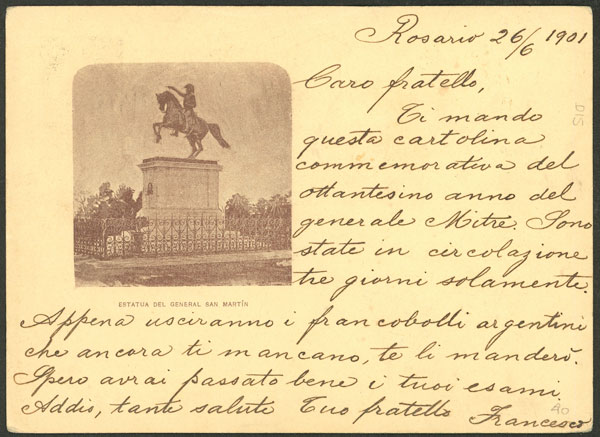 Rosario 26/6 1901
Caro fratello,
Ti mando
questa cartolina
commemorativa del
ottantesino anno del
generale Mitre. Sono
state in circolazione
tre giorni solamente.
ESTATUA DEL GENERAL SAN MARTÍN
Appena usciranno i francobolli argentini
che ancora ti mancano, te li manderò.
Spero avrai passato bene i tuoi esami
Addio, tante salute Tuo fratello Francesco
DIS
40